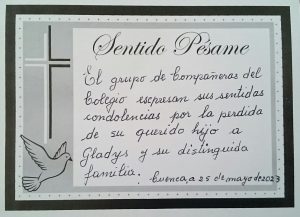 Sentido Pésame
El grupo de Compañeras del
Colegio expresan sus sentidas
condolencias por la perdida
de su querido hijo a
Gladys y su distinguida
familia. Cuenca, a 25 de mayo de 2023